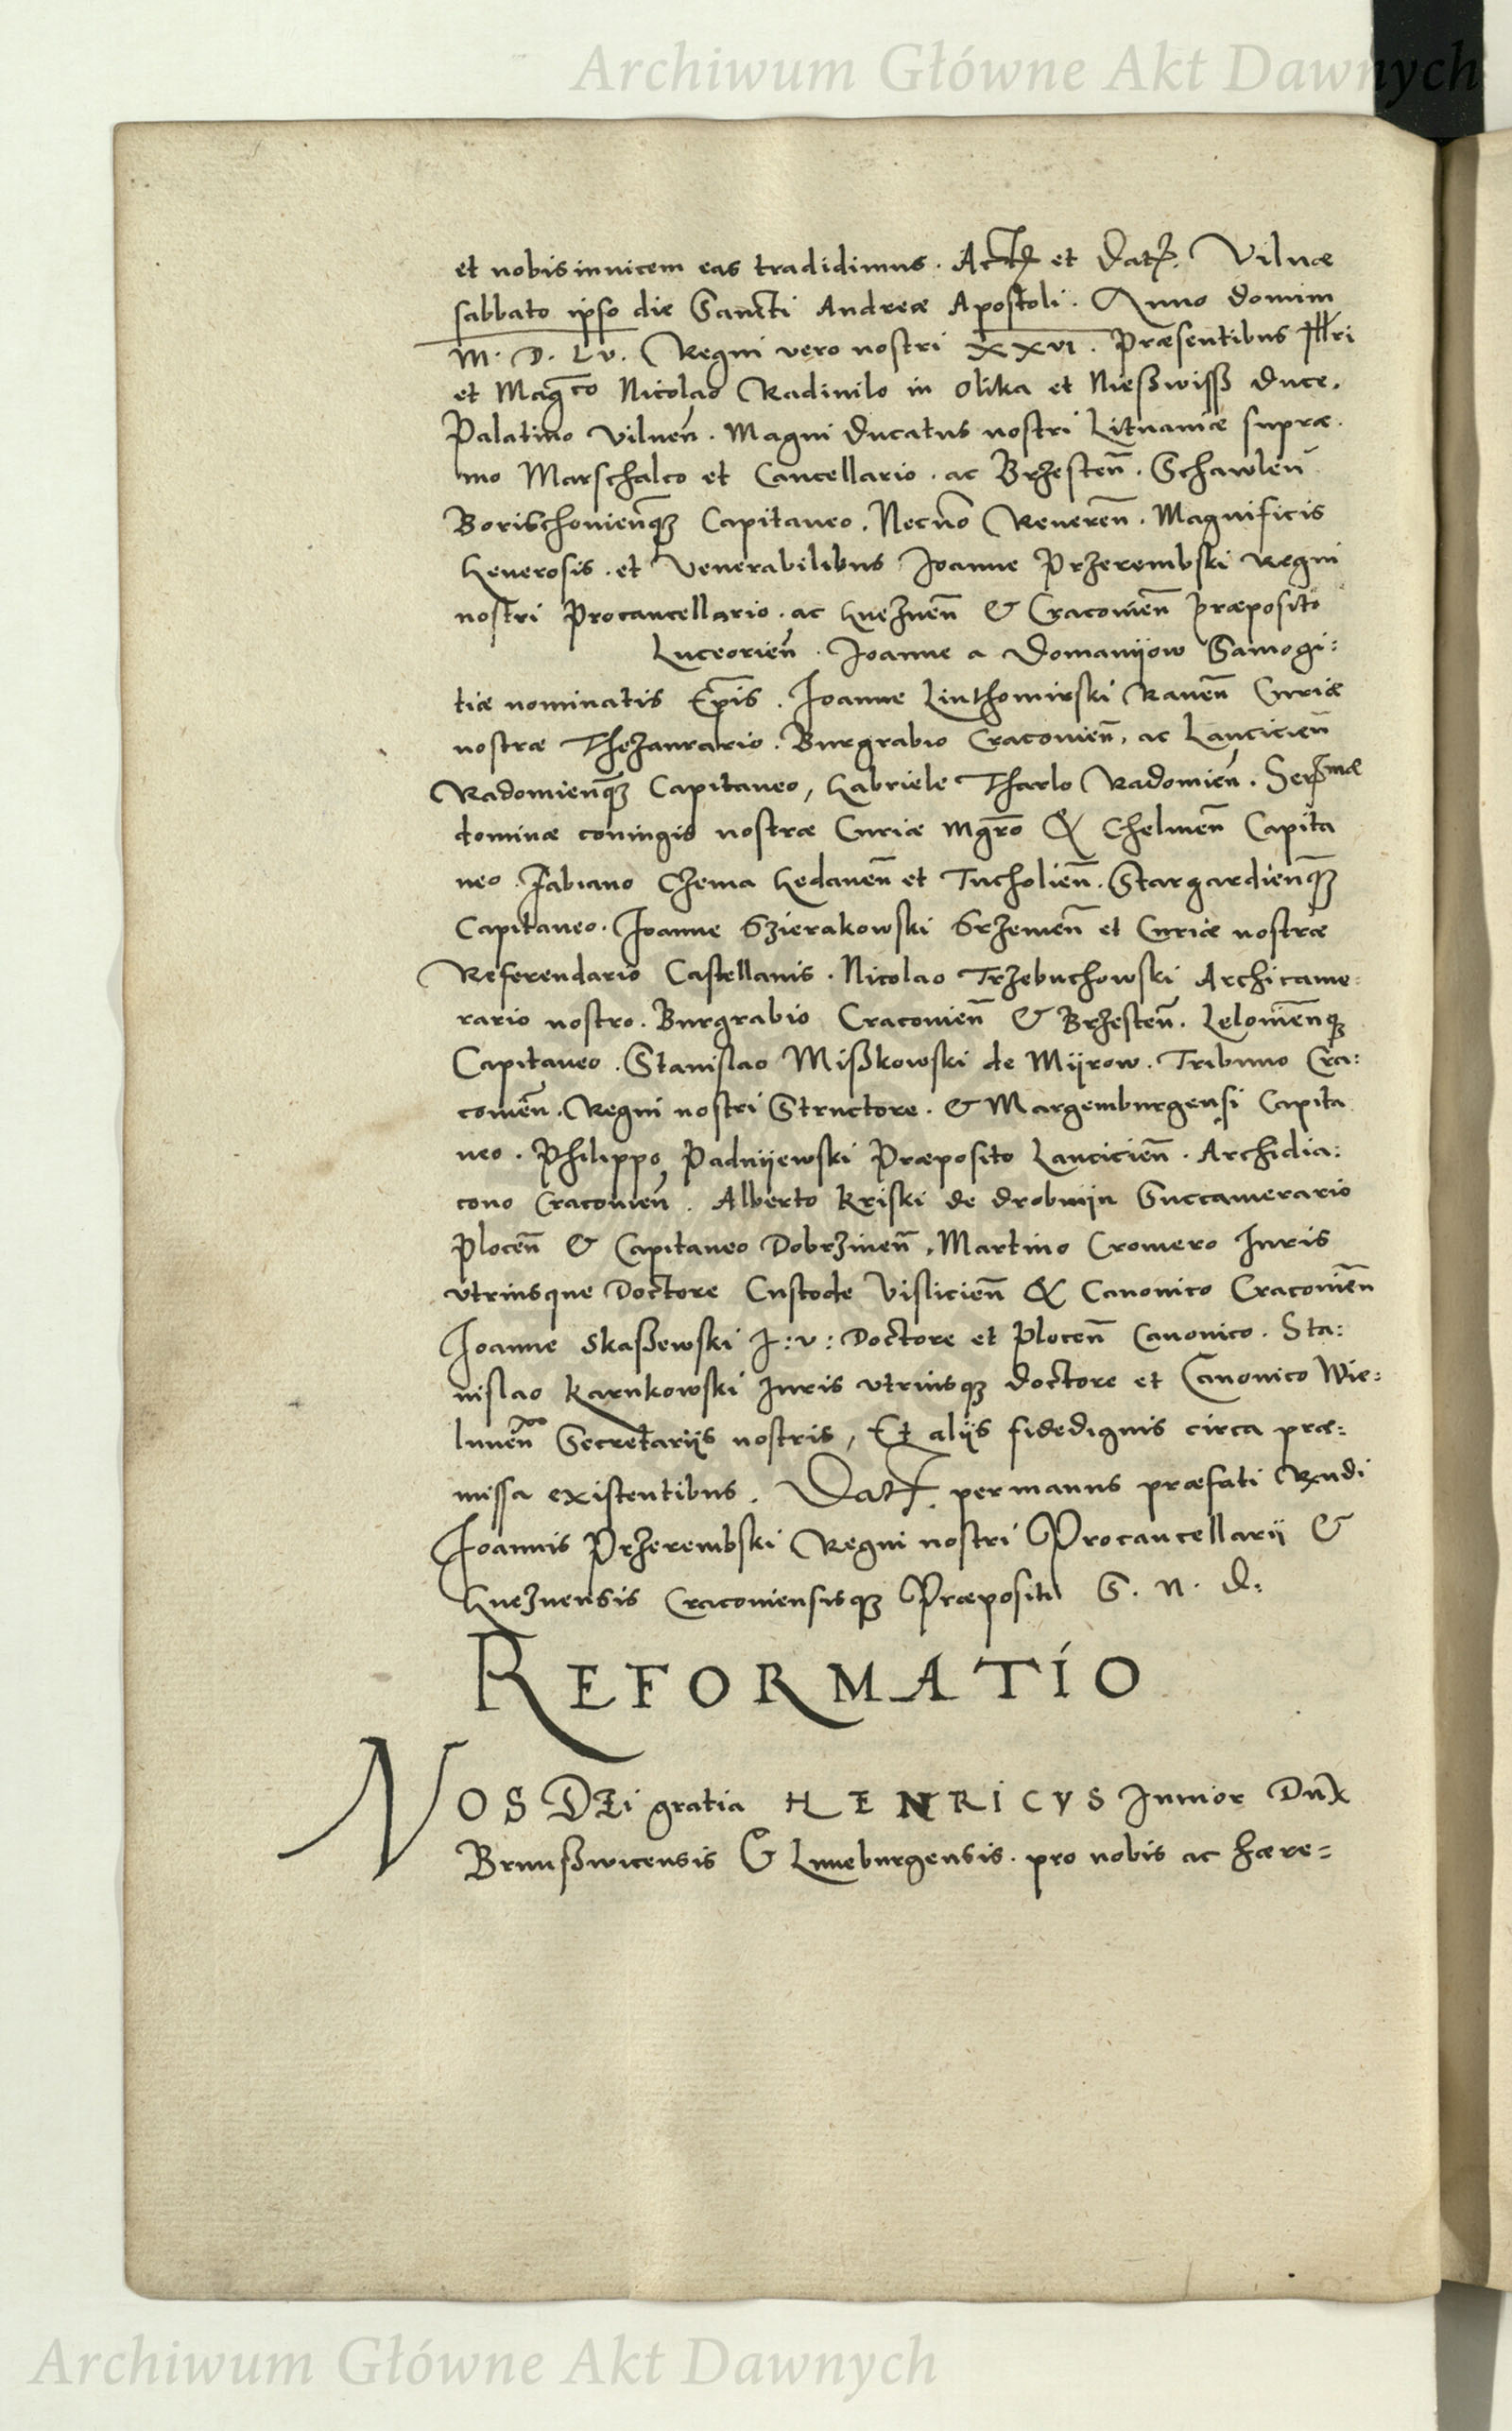 Archiwum Główne Akt Dawnych
et nobis inuicem eas tradidimus. Act. et Dat. Vilnæ
sabbato ipso die Sancti Andreæ Apostoli. Anno domini
M. D. Lv. Regni vero nostri XXVI. Præsentibus Illri
et Magco Nicolao Radiuilo in Olika et Nießwiss Duce,
Palatino Vilnen̄. Magni Ducatus nostri Lituaniæ supræ-
mo Marschalco et Cancellario. ac Brzesten̄. Schawlen̄
Borischouien̄qꝫ Capitaneo. Necnō Reueren̄. Magnificis
Generosis. et Venerabilibus Joanne Przerembski Regni
nostri Procancellario. ac Gneznen̄ & Cracouien̄ præposito
Luceorien̄. Joanne a Domanijow Samogi:
tiæ nominatis Ep̄is. Joanne Luthomirski Rauen̄ Curiæ
nostræ Thezaurario. Burgrabio Cracouien̄, ac Lancicien̄
Radomien̄qꝫ Capitaneo, Gabriele Tharlo Radomien̄. Serssmæ
dominæ coniugis nostræ Curiæ Mgrō & Chelmen̄ Capita
neo. Fabiano Czema Gedanen̄ et Tucholien̄. Stargardien̄qꝫ
Capitaneo. Joanne Szierakowski Srzemen̄ et Curiæ nostræ
Referendario Castellanis. Nicolao Trzebuchowski Archicame-
rario nostro. Burgrabio Cracouien̄ & Brzesten̄. Lelouien̄qꝫ
Capitaneo. Stanislao Mißkowski de Mijrow. Tribuno Cra:
couien̄. Regni nostri Structore. & Margemburgensi Capita
neo. Philippo Padnijewski Præposito Lancicien̄. Archidia:
cono Cracouien̄. Alberto Kriski de Drobnijn Succamerario
Plocen̄ & Capitaneo Dobrzinen̄, Martino Cromero Juris
vtriusque Doctore Custode Vislicien̄ & Canonico Cracouien̄
Joanne Skaßewski J: v: Doctore et Plocen̄ Canonico. Sta:
nislao Karnkowski Juris vtriusqꝫ doctore et Canonico Wie:
lunen̄ Secretarijs nostris, Et alijs fidedignis circa præ:
missa existentibus. Dat. per manus præfati Rndi
Joannis Przerembski Regni nostri Procancellarij &
Gneznensis Cracouiensisqꝫ Præpositi S. N. D:
REFORMATIO
NOS DEi gratia HENRICVS Junior Dux
Brunßwicensis & Luneburgensis. pro nobis ac hære=
Archiwum Główne Akt Dawnych